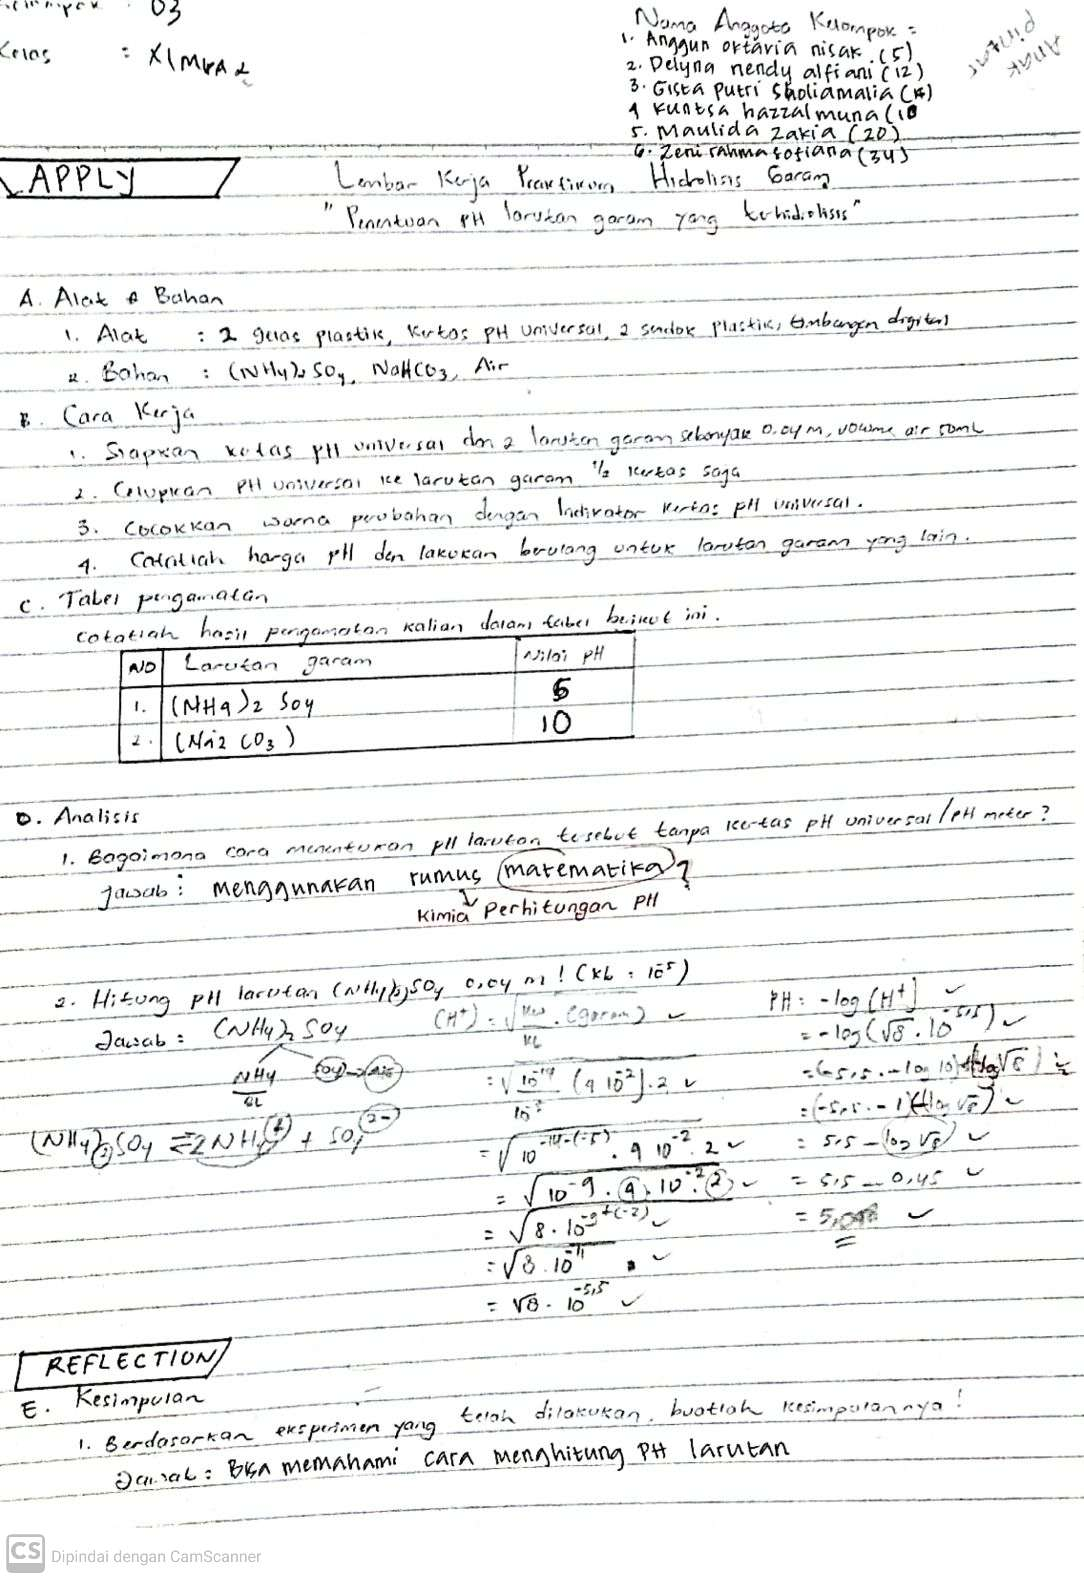 03
Kelas : XI MIPA 2
Nama Anggota Kelompok :
1. Anggun oktavia nisak (5)
2. Delyna nendy alfiani (12)
3. Gista putri sholiamalia
4 kuntsa hazzalmuna (18
5. Maulida zakia (20)
6. Zeni rahma sofiana (34)
Anak pintar
APPLY
Lembar Kerja Praktikum Hidrolisis Garam
"Penentuan pH larutan garam yang terhidrolisis"
A. Alat & Bahan
1. Alat : 2 gelas plastik, kertas pH universal, 2 sendok plastik, timbangan digital
2. Bahan : (NH4)2 SO4, NaHCO3, Air
B. Cara Kerja
1. Siapkan kertas pH universal dan 2 larutan garam sebanyak 0,04 M, volume air 50mL
2. Celupkan pH universal ke larutan garam 1/2 kertas saja
3. Cocokkan warna perubahan dengan Indikator kertas pH universal.
4. Catatlah harga pH dan lakukan berulang untuk larutan garam yang lain.
C. Tabel pengamatan
catatlah hasil pengamatan kalian dalam tabel berikut ini.
NO Larutan garam Nilai pH
1. (NH4)2 SO4 5
2. (Na2 CO3) 10
D. Analisis
1. Bagaimana cara menentukan pH larutan tesebut tanpa kertas pH universal/pH meter?
Jawab : menggunakan rumus matematika?
Kimia Perhitungan pH
2. Hitung pH larutan (NH4)2SO4 0,04 M! (Kb : 10⁻⁵)
Jawab : (NH4)2 SO4
NH4 SO4
BL
(NH4)2SO4 ⇌ 2NH4⁺ + SO4²⁻
(H⁺) = √Kw/Kb . (garam) ✓
= √10⁻¹⁴/10⁻⁵ (4 10⁻²).2 ✓
= √10⁻¹⁴⁻⁽⁻⁵⁾ . 4 10⁻² . 2 ✓
= √10⁻⁹ . 4 . 10⁻² . 2 ✓
= √8 . 10⁻⁹⁺⁽⁻²⁾ ✓
= √8 . 10⁻¹¹ ✓
= √8 . 10⁻⁵,⁵ ✓
PH : -log (H⁺) ✓
= -log (√8 . 10⁻⁵,⁵) ✓
= (-5,5 . -log 10) (log √8)
= (-5,5 . -1) (log √8) ✓
= 5,5 - log √8 ✓
= 5,5 - 0,45 ✓
= ✓
REFLECTION
E. Kesimpulan
1. Berdasarkan eksperimen yang telah dilakukan, buatlah kesimpulannya!
Jawab : Bisa memahami cara menghitung PH larutan
CS Dipindai dengan CamScanner